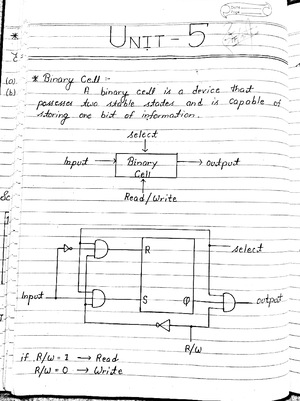 UNIT-5
(a) * Binary Cell :-
(b) A binary cell is a device that
possesses two stable states and is capable of
storing one bit of information.
select
Input
Binary
Cell
output
Read/Write
R
select
Input
S
Q
output
R/W
if R/W = 1 → Read
R/W = 0 → Write